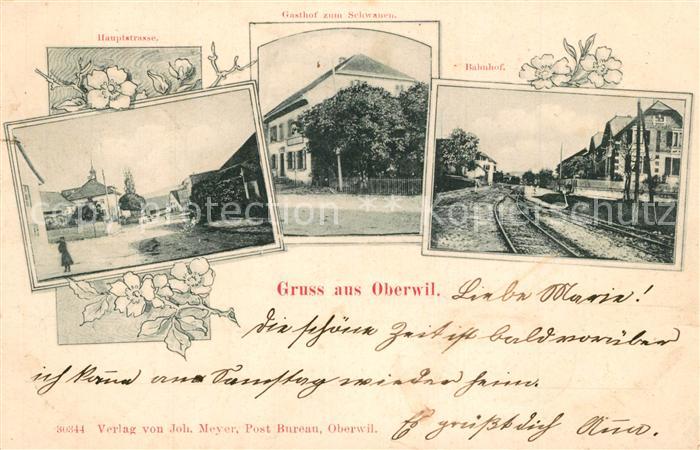 Gasthof zum Schwanen.
Hauptstrasse.
Bahnhof.
Gruss aus Oberwil. Liebe Marie!
die schöne Zeit ist bald vorüber
ich kann am Samstag wieder heim.
Es grüßt dich Anna.
30344 Verlag von Joh. Meyer, Post Bureau, Oberwil.
copyright protection ** Kopierschutz